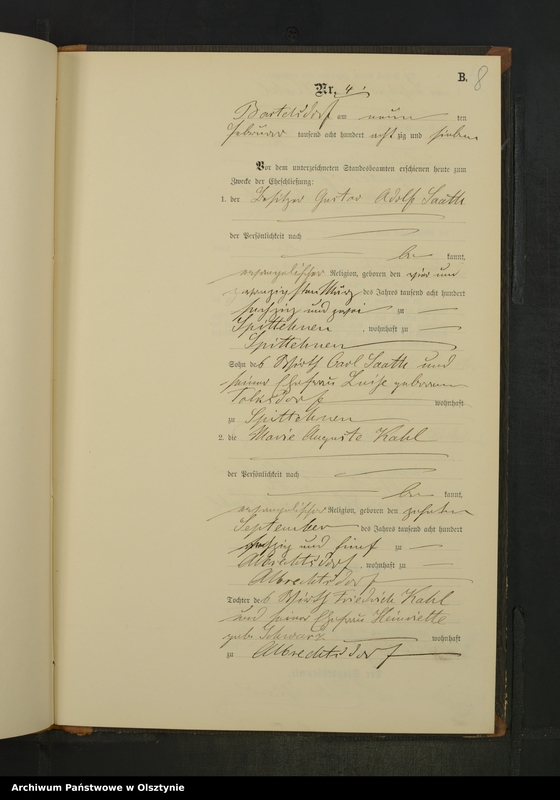 B.
8
Nr. 4.
Bartelsdorf am neun ten
Februar tausend acht hundert acht zig und sieben
Vor dem unterzeichneten Standesbeamten erschienen heute zum
Zwecke der Eheschließung:
1. der Besitzer Gustav Adolf Saath
der Persönlichkeit nach
be kannt,
evangelischer Religion, geboren den vier und
zwanzigsten März des Jahres tausend acht hundert
sechzig und zwei zu
Spittehnen, wohnhaft zu
Spittehnen
Sohn des Wirth Carl Saath und
seiner Ehefrau Luise geborenen
Volksdorf wohnhaft
zu Spittehnen
2. die Marie Auguste Kahl
der Persönlichkeit nach
be kannt,
evangelischer Religion, geboren den zehnten
September des Jahres tausend acht hundert
sechzig und fünf zu
Albrechtsdorf, wohnhaft zu
Albrechtsdorf
Tochter des Wirth Friedrich Kahl
und seiner Ehefrau Heinriette
geb. Schwarz wohnhaft
zu Albrechtsdorf
Archiwum Państwowe w Olsztynie